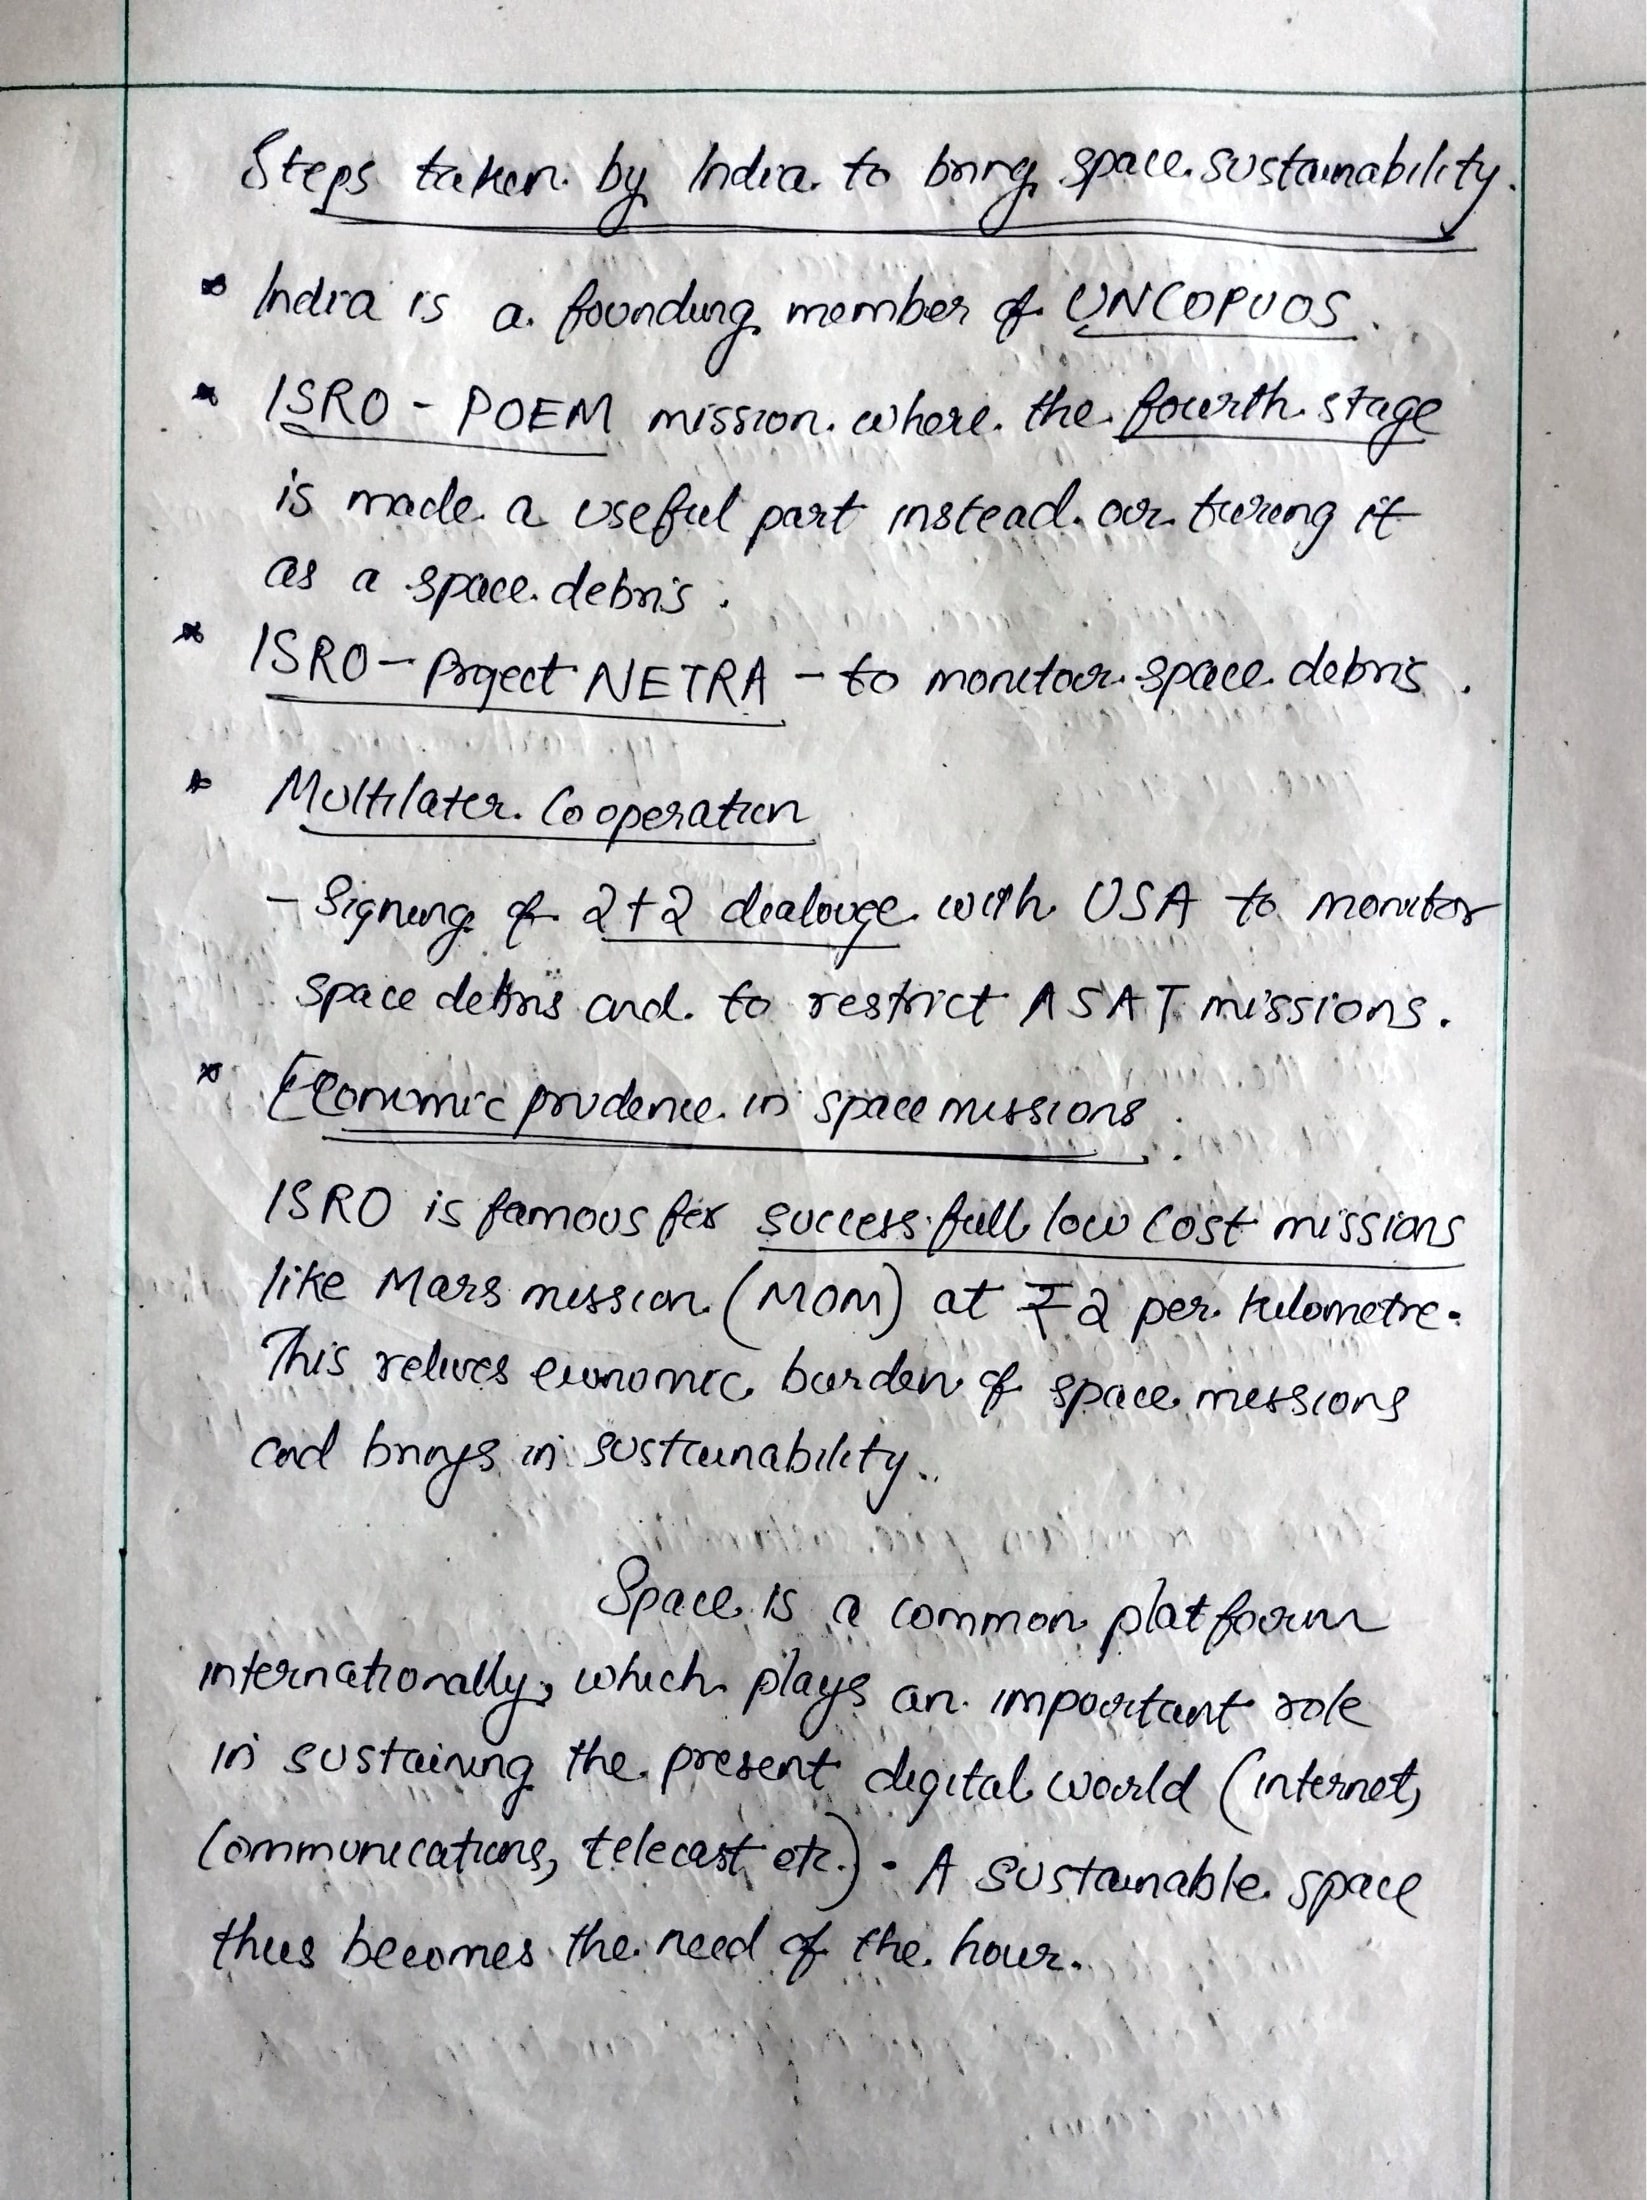 Steps taken by India to bring space sustainability.
* India is a founding member of UNCOPUOS.
* ISRO - POEM mission where the fourth stage
is made a useful part instead our turing it
as a space debris.
* ISRO - Project NETRA - to monitor space debris.
* Multilater Cooperation
- Signing of 2+2 dialouge with USA to monitor
space debris and to restrict ASAT missions.
* Economic prudence in space missions.
ISRO is famous for successfull low cost missions
like Mars mission (MOM) at ₹2 per kilometre.
This relives economic burden of space missions
and brings in sustainability.
Space is a common platform
internationally, which plays an important role
in sustaining the present digital world (internet,
Communications, telecast etc.). A sustainable space
thus becomes the need of the hour.